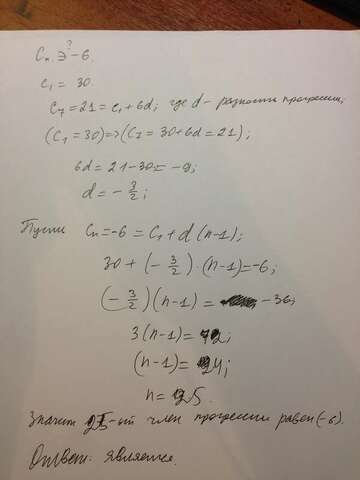 Cₙ ∋ -6
?
c₁ = 30.
C₇ = 21 = c₁ + 6d; где d - разность прогрессии;
(C₁ = 30) => (C₇ = 30 + 6d = 21);
6d = 21 - 30 = -9;
d = - 3/2;
Пусть Cₙ = -6 = C₁ + d (n-1);
30 + (- 3/2) · (n-1) = -6;
(- 3/2) (n-1) = -36;
3 (n-1) = 72;
(n-1) = 24;
n = 25.
Значит 25-ый член прогрессии равен (-6).
Ответ: является.